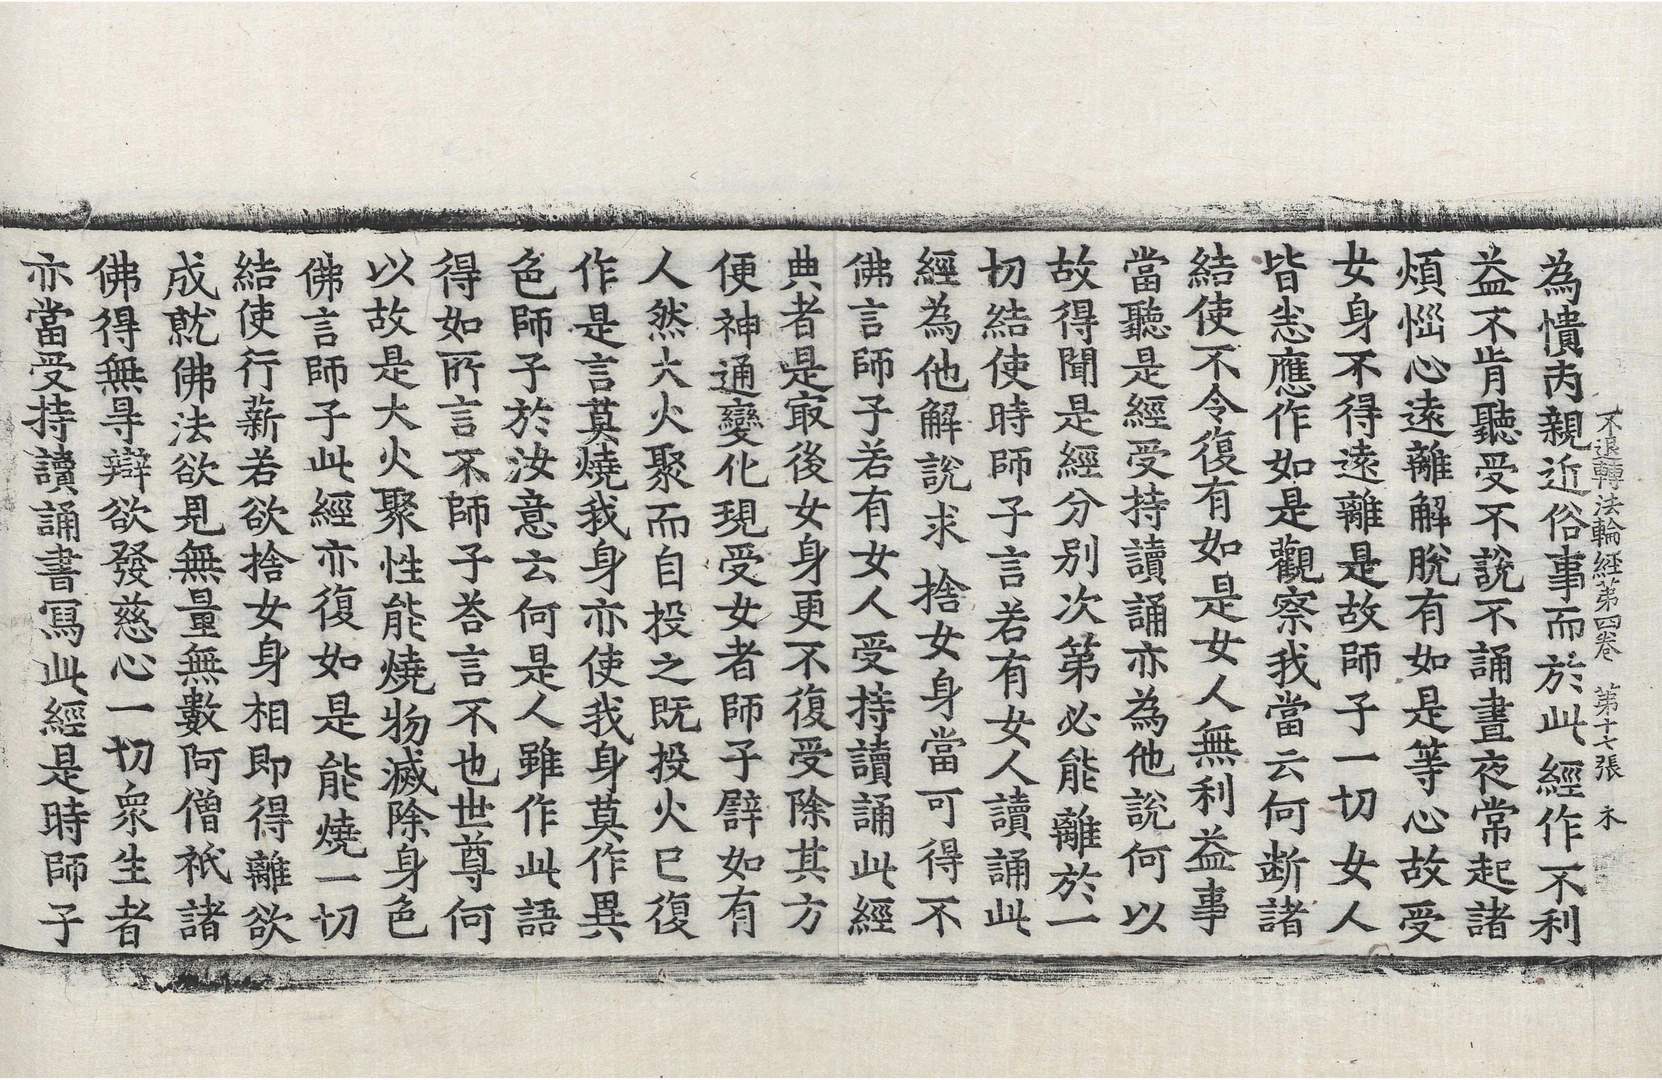 不退轉法輪經第四卷 第十七張 木
為憒丙親近俗事而於此經作不利
益不肯聽受不說不誦晝夜常起諸
煩惱心遠離解脫有如是等心故受
女身不得遠離是故師子一切女人
皆悉應作如是觀察我當云何断諸
結使不令復有如是女人無利益事
當聽是經受持讀誦亦為他說何以
故得聞是經分別次第必能離於一
切結使時師子言若有女人讀誦此
經為他解說求捨女身當可得不
佛言師子若有女人受持讀誦此經
典者是㝡後女身更不復受除其方
便神通變化現受女者師子譬如有
人然大火聚而自投之既投火已復
作是言莫燒我身亦使我身莫作異
色師子於汝意云何是人雖作此語
得如所言不師子荅言不也世尊何
以故是大火聚性能燒物滅除身色
佛言師子此經亦復如是能燒一切
結使行薪若欲捨女身相即得離欲
成就佛法欲見無量無數阿僧祇諸
佛得無㝵辯欲發慈心一切衆生者
亦當受持讀誦書寫此經是時師子